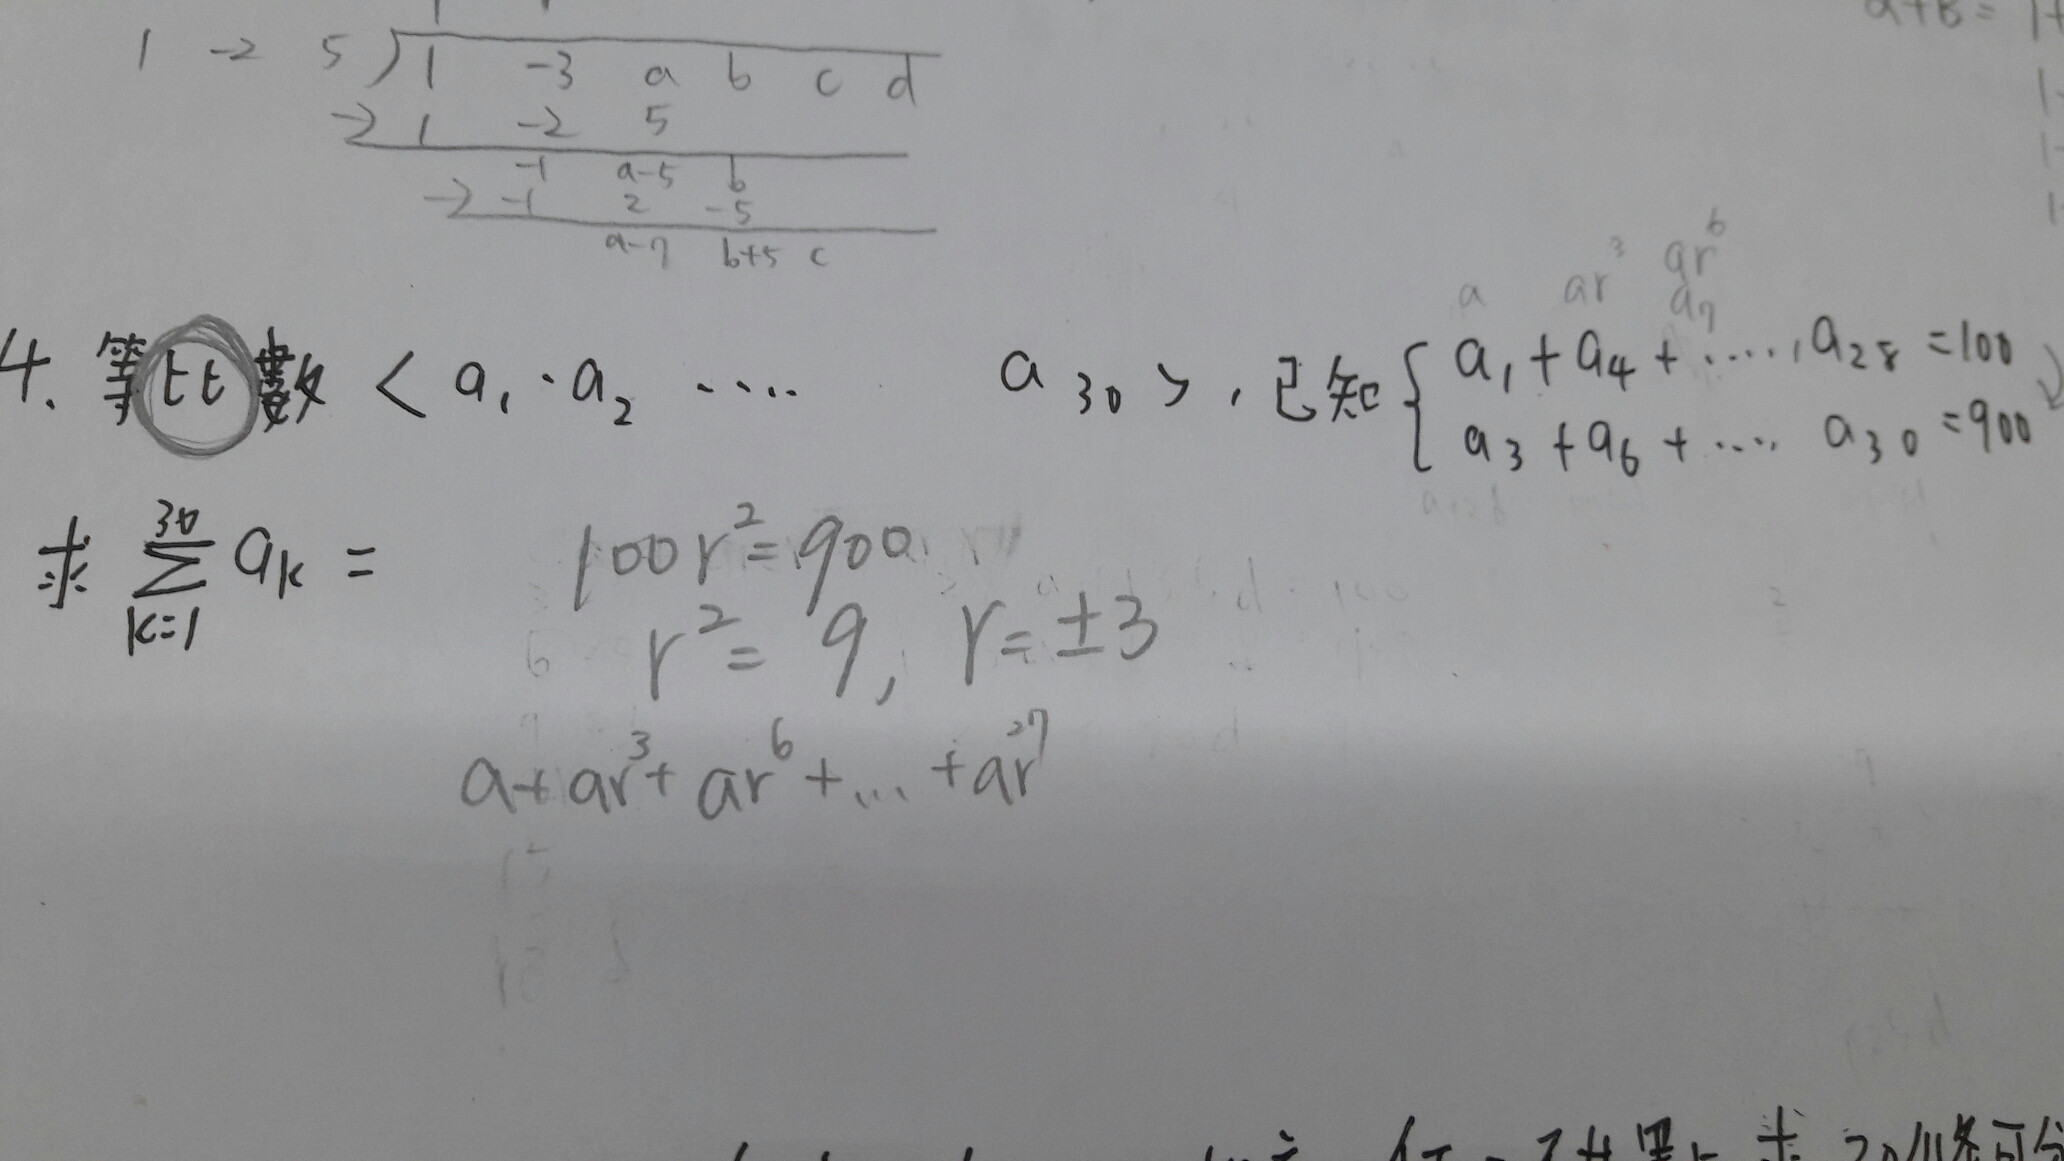 a+B=1+
1 -2 5 ) 1 -3 a b c d
-> 1 -2 5
-1 a-5 b
-> -1 2 -5
a-7 b+5 c
a ar³ ar⁶
a₇
4. 等比數 < a₁ · a₂ ···· a₃₀ > , 已知 { a₁ + a₄ + ····, a₂₈ = 100
a₃ + a₆ + ···· a₃₀ = 900
求 30 Σ k=1 aₖ = 100r² = 900
r² = 9, r = ±3
a + ar³ + ar⁶ + ... + ar²⁷